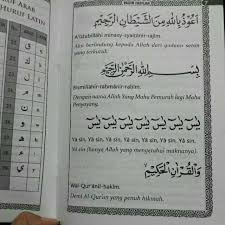 HURUF ARAB
HURUF LATIN
أَعُوْذُ بِاللّٰهِ مِنَ الشَّيْطَانِ الرَّجِيْمِ
A'ūdzubillāhi minasy-syaitānir-rajīm.
Aku berlindung kepada Allah dari godaan setan yang terkutuk.
بِسْمِ اللّٰهِ الرَّحْمٰنِ الرَّحِيْمِ
Bismillāhir-rahmānir-rahīm.
Dengan nama Allah Yang Maha Pemurah lagi Maha Penyayang.
يٰسٓ يٰسٓ يٰسٓ يٰسٓ يٰسٓ يٰسٓ يٰسٓ
Yā sīn, Yā sīn, Yā sīn, Yā sīn, Yā sīn, Yā sīn, Yā sīn.
Yā sīn (hanya Allah yang mengetahui maknanya).
وَالْقُرْاٰنِ الْحَكِيْمِ
Wal-Qur'ānil-hakīm.
Demi Al-Qur'an yang penuh hikmah.